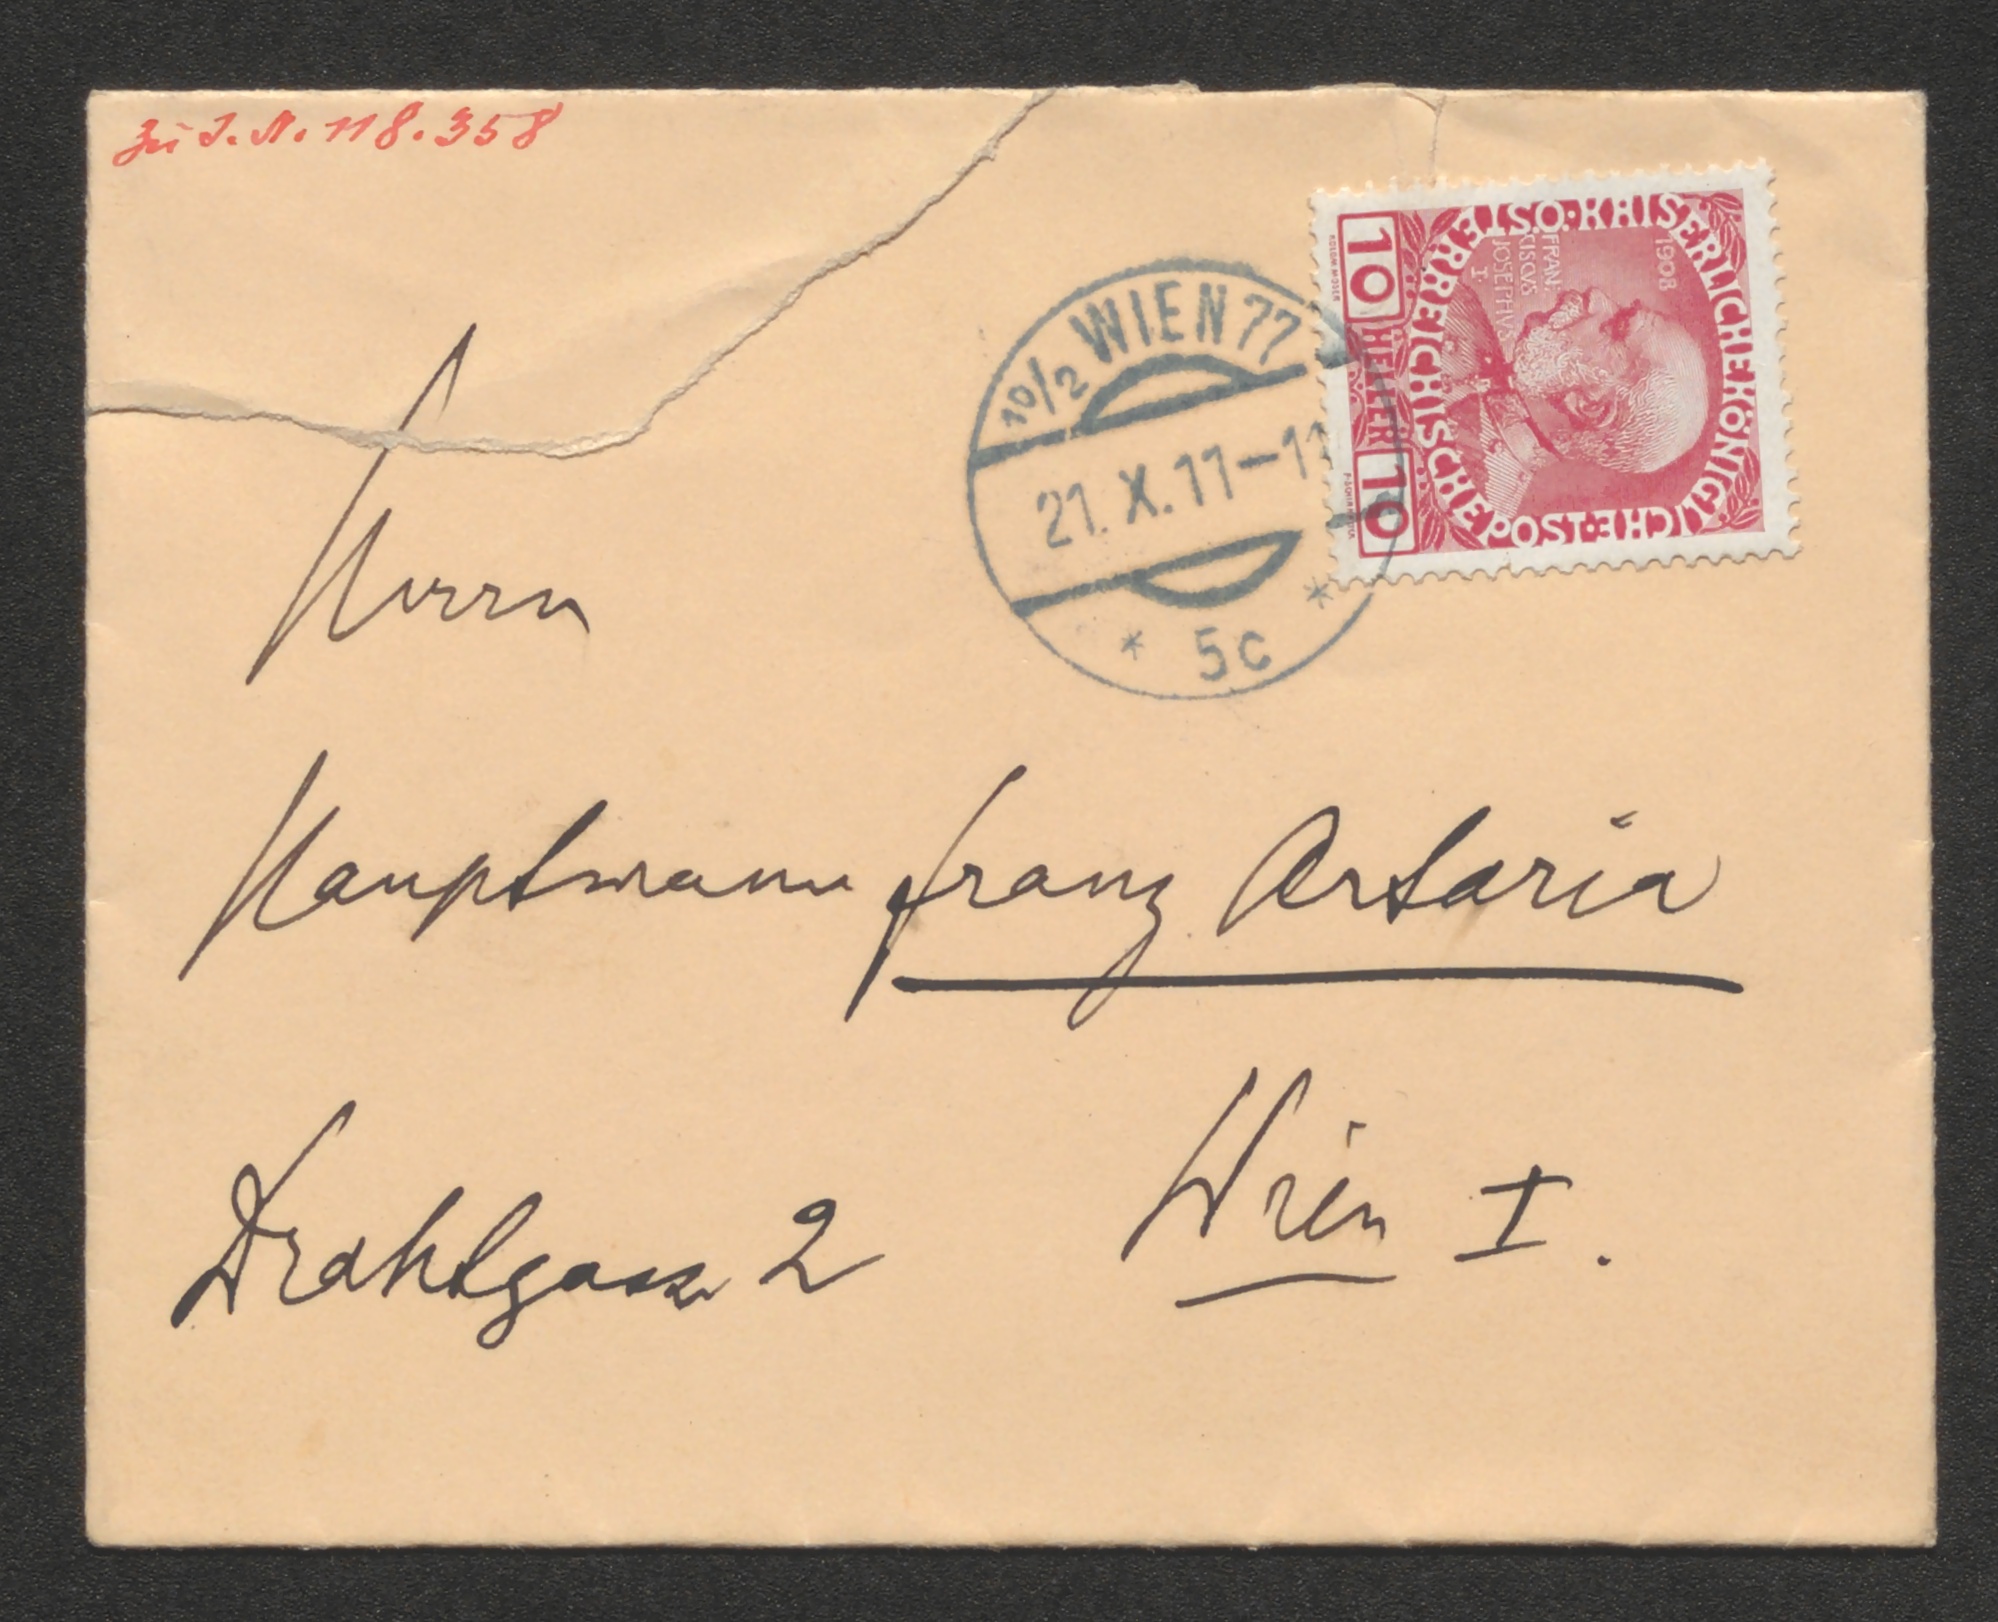 zu I.N. 118.358
10/2 WIEN 77
21. X. 11–11
* 5c *
KAISERLICHE KÖNIGLICHE POST ÖSTERREICHISCHE
1908
FRAN:
CISCVS
JOSEPHVS
I
10 HELLER 10
Herrn
Hauptmann Franz Artaria
Wien I.
Drahtgasse 2